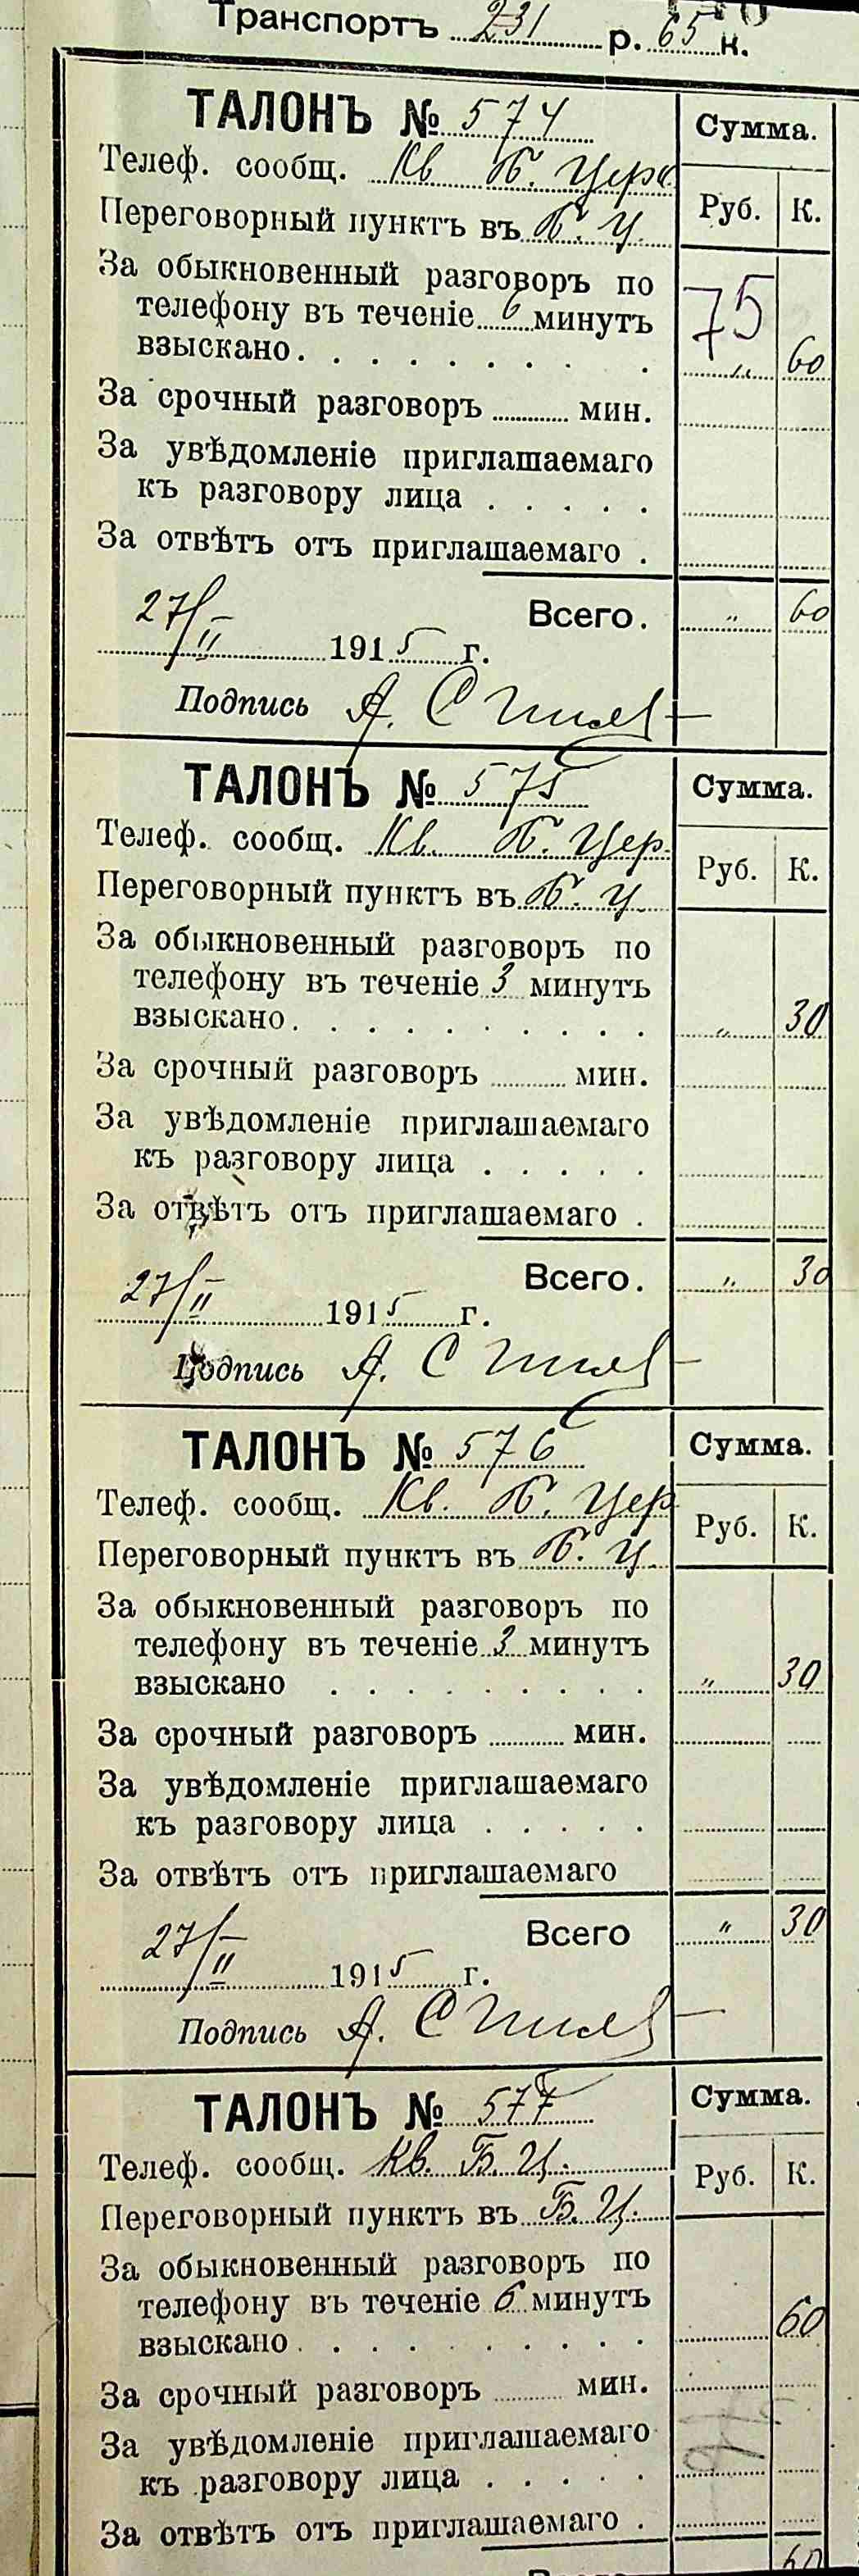 Транспортъ 231 р. 65 к.
ТАЛОНЪ № 574
Сумма.
Телеф. сообщ. Кв. Б. Церк.
Руб. К.
Переговорный пунктъ въ Б. Ц.
За обыкновенный разговоръ по
телефону въ теченіе 6 минутъ
75
взыскано. . . . . . . . . „ 60
За срочный разговоръ ........ мин.
За увѣдомленіе приглашаемаго
къ разговору лица . . . . .
За отвѣтъ отъ приглашаемаго .
Всего. „ 60
27/II 1915 г.
Подпись А.
ТАЛОНЪ № 575
Сумма.
Телеф. сообщ. Кв. Б. Цер.
Руб. К.
Переговорный пунктъ въ Б. Ц.
За обыкновенный разговоръ по
телефону въ теченіе 3 минутъ
взыскано. . . . . . . . . . „ 30
За срочный разговоръ ........ мин.
За увѣдомленіе приглашаемаго
къ разговору лица . . . . .
За отвѣтъ отъ приглашаемаго .
Всего. „ 30
27/II 1915 г.
Подпись А.
ТАЛОНЪ № 576
Сумма.
Телеф. сообщ. Кв. Б. Цер
Руб. К.
Переговорный пунктъ въ Б. Ц.
За обыкновенный разговоръ по
телефону въ теченіе 3 минутъ
взыскано . . . . . . . . . „ 30
За срочный разговоръ ........ мин.
За увѣдомленіе приглашаемаго
къ разговору лица . . . . .
За отвѣтъ отъ приглашаемаго
Всего „ 30
27/II 1915 г.
Подпись А.
ТАЛОНЪ № 577
Сумма.
Телеф. сообщ. Кв. Б. Ц.
Руб. К.
Переговорный пунктъ въ Б. Ц.
За обыкновенный разговоръ по
телефону въ теченіе 6 минутъ
взыскано. . . . . . . . . . 60
За срочный разговоръ ........ мин.
За увѣдомленіе приглашаемаго
къ разговору лица . . . . .
За отвѣтъ отъ приглашаемаго .
60